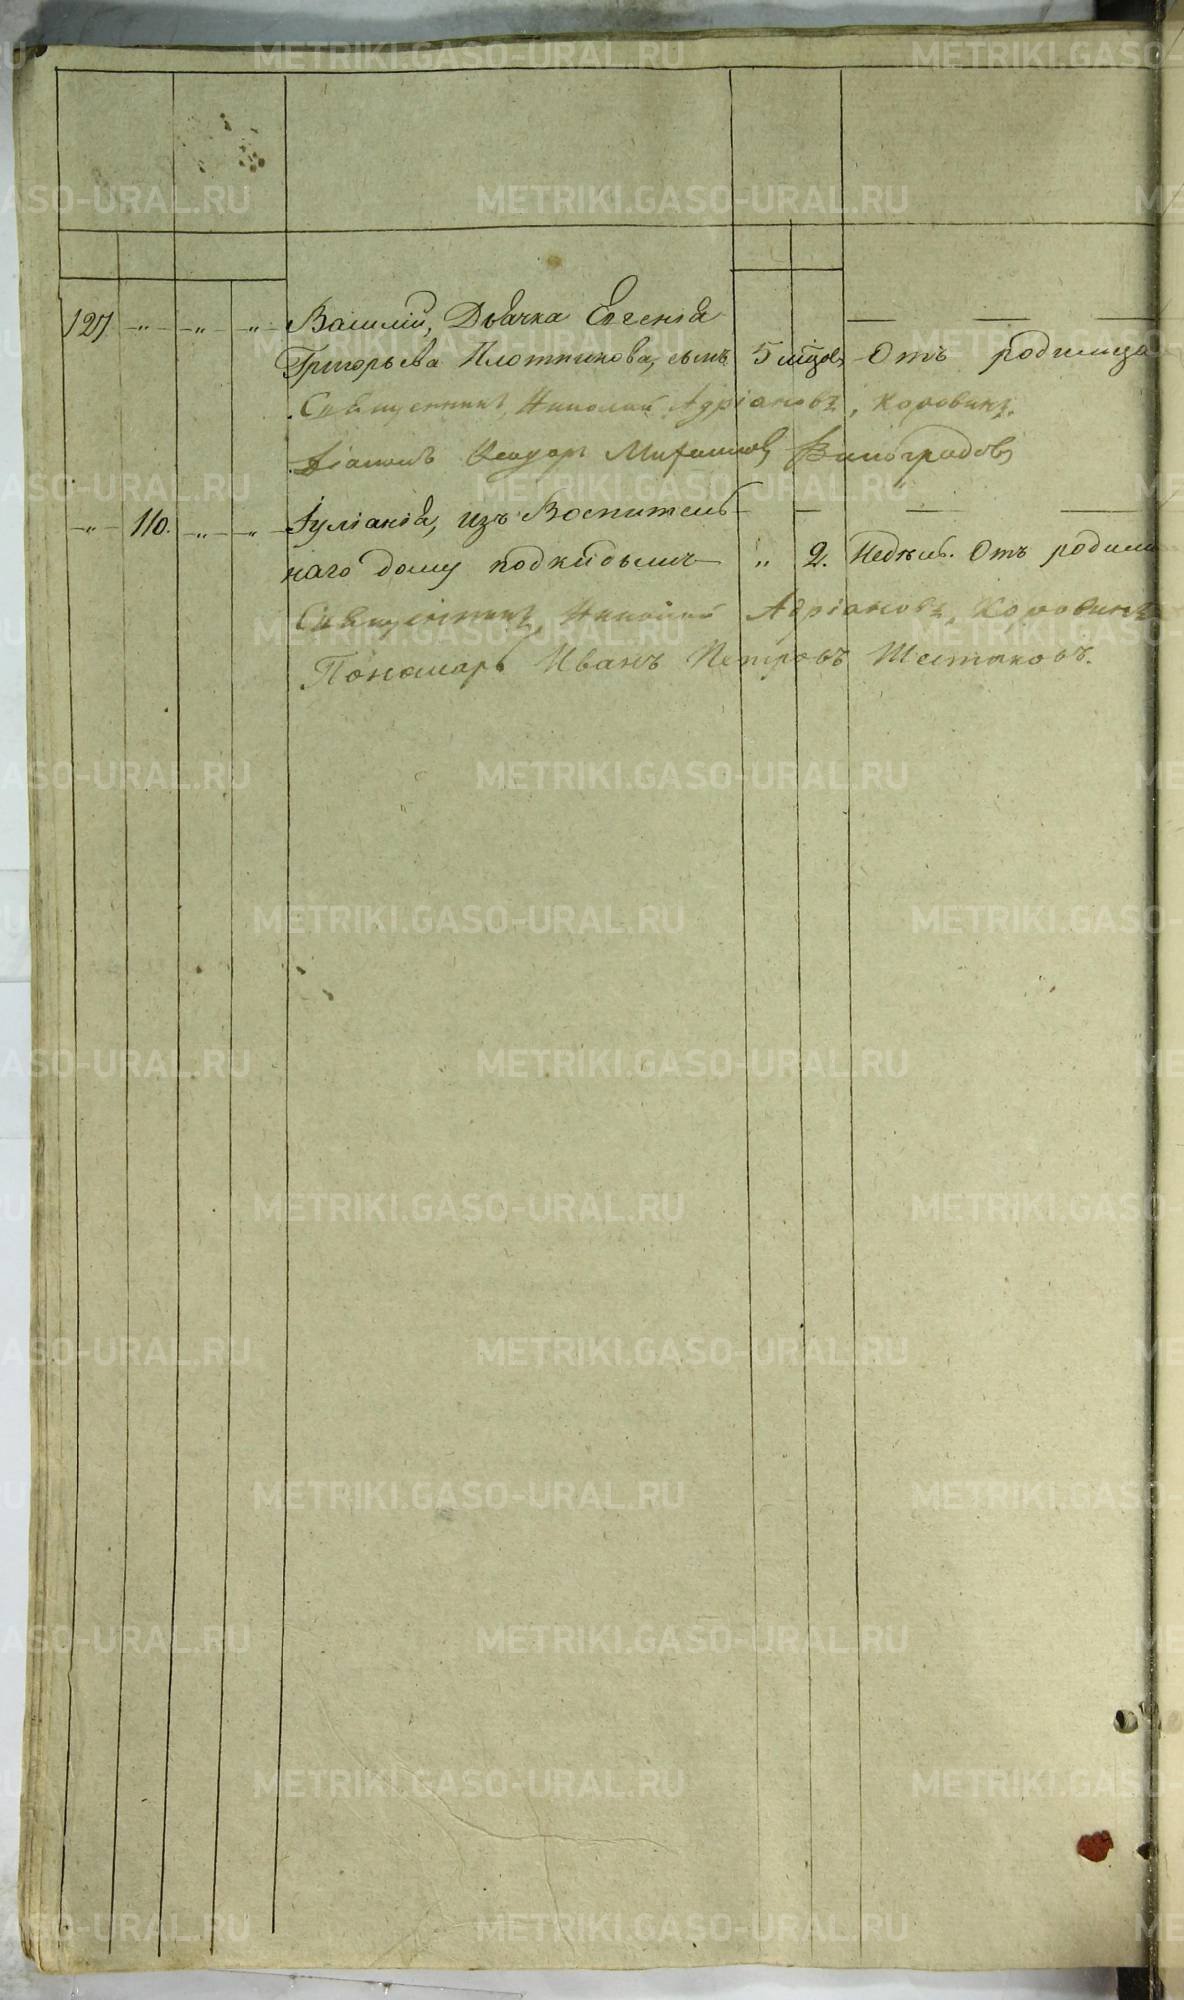 127 -„- -„- -„- Василій, Дьячка Евгенія
Григорьева Плотникова, сынъ 5 мцовъ Отъ родимца
Священникъ Николай Адріановъ Коровинъ.
Діаконъ Ѳеодоръ Виноградовъ
-„- 110. -„- -„- Іуліанія, изъ Воспитель-
наго дому подкидышъ „ 2. Недѣль. Отъ родим
Священникъ, Николай Адріановъ, Коровинъ
Пономарь Иванъ Петровъ Шестаковъ.
METRIKI.GASO-URAL.RU